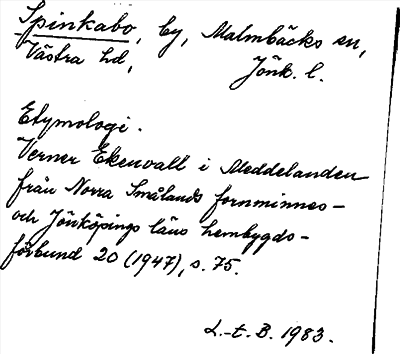 Spinkabo, by, Malmbäcks sn,
Västra hd, Jönk. l.
Etymologi.
Verner Ekenvall i Meddelanden
från Norra Smålands fornminnes-
och Jönköpings läns hembygds-
förbund 20 (1947), s. 75.
L.-t. B. 1983.